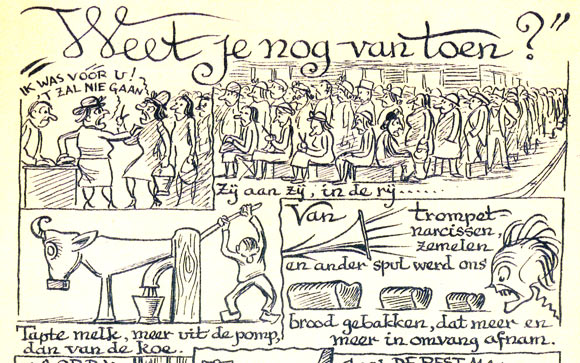 Weet je nog van toen?"
IK WAS VOOR U!
'T ZAL NIE GAAN
Zij aan zij, in de rij......
Tapte melk, meer uit de pomp,
dan van de koe.
Van trompet-
narcissen,
zemelen
en ander spul werd ons
brood gebakken, dat meer en
meer in omvang afnam.
DE REST